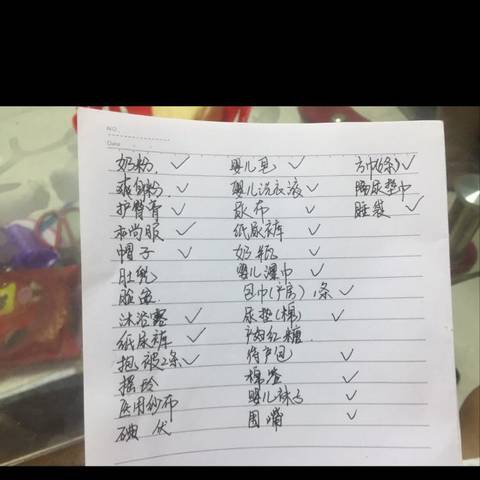 NO.
Date
奶粉 ✓ 婴儿皂 ✓ 方巾(6条) ✓
爽身粉 婴儿洗衣液 ✓ 隔尿垫巾
护臀膏 ✓ 尿布 ✓ 睡袋 ✓
和尚服 ✓ 纸尿裤 ✓
帽子 ✓ 奶瓶 ✓
肚兜 婴儿湿巾 ✓
脸盆 包巾(产房) 1条 ✓
沐浴露 ✓ 尿垫(棉) ✓
纸尿裤 ✓ 产妇红糖
抱被2条 ✓ 待产包 ✓
摇铃 棉签 ✓
医用纱布 婴儿袜子 ✓
碘伏 围嘴 ✓